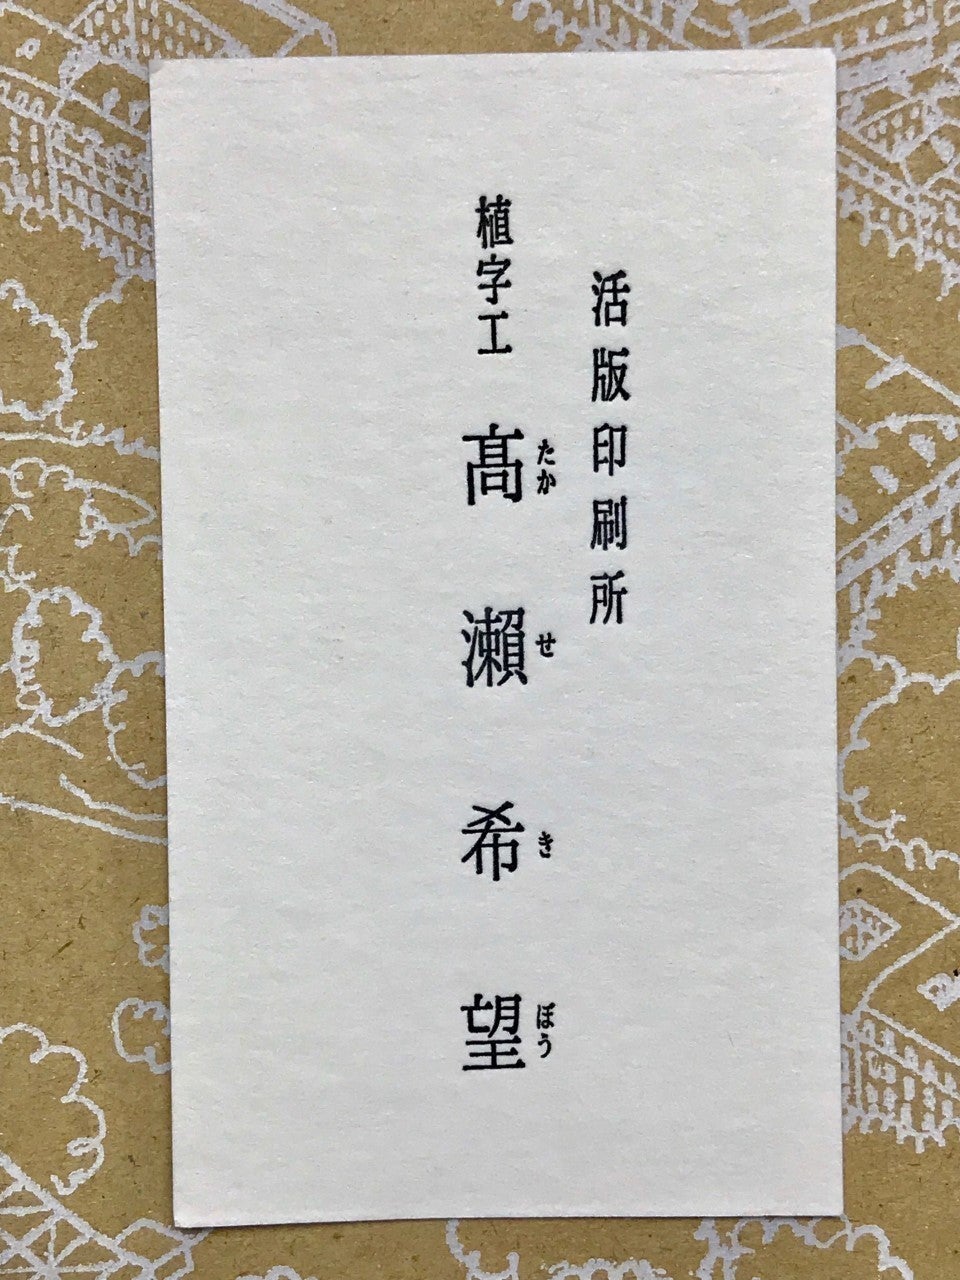 活版印刷所
植字工 髙瀨希望
たかせきぼう